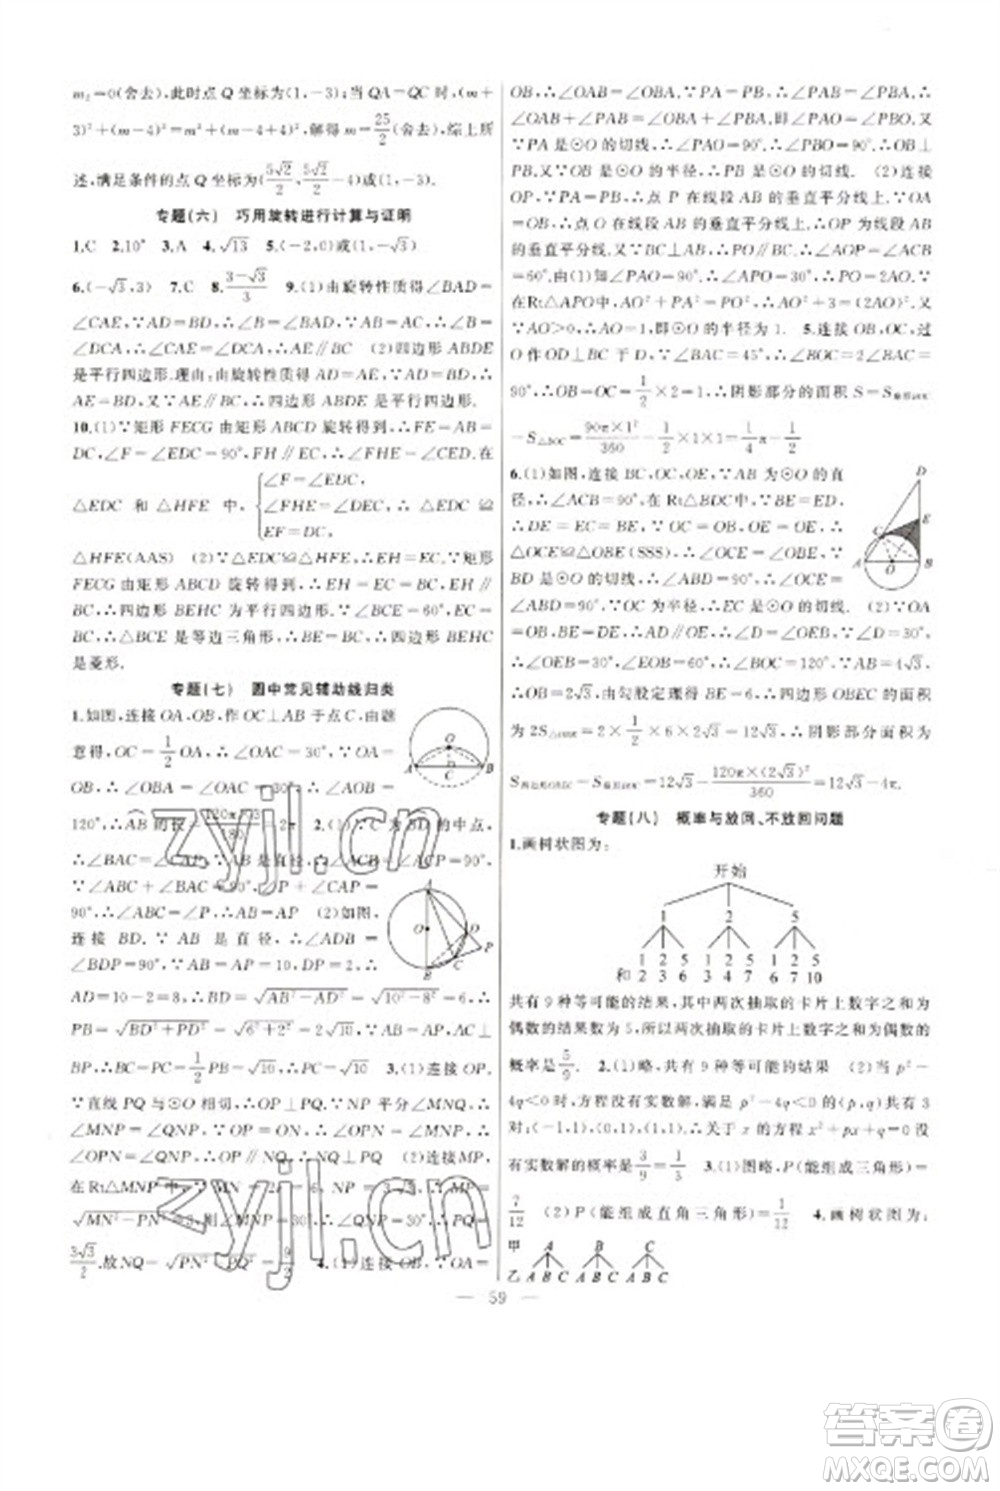 m₂=0(舍去),此时点 Q 坐标为(1,-3);当 QA=QC 时,(m+
3)²+(m-4)²=m²+(m-4+4)²,解得 m=25/2(舍去),综上所
述,满足条件的点 Q 坐标为(5√2/2,5√2/2-4)或(1,-3).
专题(六) 巧用旋转进行计算与证明
1.C 2.10° 3.A 4.√13 5.(-2,0)或(1,-√3)
6.(-√3,3) 7.C 8.(3-√3)/3 9.(1)由旋转性质得∠BAD=
∠CAE,∵AD=BD,∴∠B=∠BAD,∵AB=AC,∴∠B=
∠DCA,∴∠CAE=∠DCA,∴AE∥BC (2)四边形 ABDE
是平行四边形.理由:由旋转性质得 AD=AE,∵AD=BD,∴
AE=BD,又∵AE∥BC,∴四边形 ABDE 是平行四边形
10.(1)∵矩形 FECG 由矩形 ABCD 旋转得到,∴FE=AB=
DC,∠F=∠EDC=90°,FH∥EC,∴∠FHE=∠CED.在
△EDC 和 △HFE 中, {∠F=∠EDC, ∠FHE=∠DEC, EF=DC, ∴△EDC≌
△HFE(AAS) (2)∵△EDC≌△HFE,∴EH=EC.∵矩形
FECG 由矩形 ABCD 旋转得到,∴EH=EC=BC,EH∥BC,
∴四边形 BEHC 为平行四边形.∵∠BCE=60°,EC=
BC,∴△BCE 是等边三角形,∴BE=BC,∴四边形 BEHC
是菱形.
专题(七) 圆中常见辅助线归类
1.如图,连接 OA,OB,作 OC⊥AB 于点 C,由题
意得,OC=1/2 OA,∴∠OAC=30°,∵OA=
OB,∴∠OBA=∠OAB=30°,∴∠AOB=
120°,∴AB的长= 120π×3/180 =2π 2.(1)∵C为BD的中点,
∴∠BAC=∠CAP.∵∠ACB=∠ACP=90°,
∵∠ABC+∠BAC=90°,∠P+∠CAP=
90°,∴∠ABC=∠P,∴AB=AP (2)如图,
连接 BD.∵ AB 是直径,∴∠ADB=
∠BDP=90°,∵AB=AP=10,DP=2,∴
AD=10-2=8,∴BD=√(AB²-AD²)=√(10²-8²)=6,∴
PB=√(BD²+PD²)=√(6²+2²)=2√10,∵AB=AP,AC⊥
BP,∴PC=BC=1/2 PB=√10,∴PC=√10 3.(1)连接 OP,
∵直线 PQ 与⊙O 相切,∴OP⊥PQ.∵NP 平分∠MNQ,∴
∠MNP=∠QNP,∵OP=ON,∴∠OPN=∠MNP,∴
∠OPN=∠QNP,∴OP∥NQ,∴NQ⊥PQ (2)连接 MP,
在Rt△MNP 中,∵MN=6,NP=3√3,∴MP=
√(MN²-PN²)=3,则∠MNP=30°,∴∠PNQ=30°,∴PQ=
3√3/2,故 NQ=√(PN²-PQ²)=9/2 4.(1)连接 OB,∵OA=
OB,∴∠OAB=∠OBA,∵PA=PB,∴∠PAB=∠PBA,∴
∠OAB+∠PAB=∠OBA+∠PBA,即∠PAO=∠PBO.又
∵PA是⊙O的切线,∴∠PAO=90°,∴∠PBO=90°,∴OB⊥
PB,又∵OB是⊙O的半径,∴PB是⊙O的切线 (2)连接
OP,∵PA=PB,∴点 P 在线段 AB 的垂直平分线上.∵
OA=OB,∴点 O 在线段 AB 的垂直平分线上,∴OP 为线段 AB
的垂直平分线.又∵BC⊥AB,∴PO∥BC,∴∠AOP=∠ACB
=60°,由(1)知∠PAO=90°,∴∠APO=30°,∴PO=2AO.
在Rt△APO中,∵AO²+PA²=PO²,∴AO²+3=(2AO)²,又
∵AO>0,∴AO=1,∴⊙O的半径为 1. 5.连接OB,OC,过
O作OD⊥BC 于 D,∵∠BAC=45°,∴∠BOC=2∠BAC=
90°,∴OB=OC=1/2×2=1,∴阴影部分的面积 S=S扇形BOC
-S△BOC=90π×1²/360-1/2×1×1=1/4π-1/2
6.(1)如图,连接 BC,OC,OE,∵AB为⊙O的直
径,∴∠ACB=90°,在 Rt△BDC中,∵BE=ED,
∴DE=EC=BE.∵OC=OB,OE=OE,∴
△OCE≌△OBE(SSS),∴∠OCE=∠OBE.∵
BD是⊙O的切线,∴∠OCE=
∠ABD=90°.∵OC为半径,∴EC是⊙O的切线 (2)∵OA
=OB,BE=DE,∴AD∥OE,∴∠D=∠OEB.∵∠D=30°,
∴∠OEB=30°,∠EOB=60°,∴∠BOC=120°.∵AB=
4√3,∴OB=2√3,由勾股定理得 BE=6,∴四边形 OBEC 的面积为
2S△OBE=2×1/2×6×2√3=12√3,∴阴影部分面积为
S四边形OBEC-S扇形BOC=12√3-120π×(2√3)²/360=12√3-4π.
专题(八) 概率与放回、不放回问题
1.画树状图为:
开始
1 2 5
1 2 5 1 2 5 1 2 5
和 2 3 6 3 4 7 6 7 10
共有 9 种等可能的结果,其中两次抽取的卡片上数字之和为
偶数的结果数为 5,所以两次抽取的卡片上数字之和为偶数的
概率为 5/9 2.(1)略,共有 9 种等可能的结果 (2)当 p²-
4q≥0时,方程没有实数解,满足 p²-4q≥0的(p,q)共有 3
对:(-1,1),(0,1),(1,1),∴关于 x 的方程 x²+px+q=0没
有实数解的概率是 3/9=1/3 3.(1)图略,P(能组成三角形)=
7/12 (2)P(能组成直角三角形)=1/12 4.画树状图为:
甲 A B C
乙 A B C A B C A B C
59
zyjl.cn
zyjl.cn
答案圈
MXQE.COM